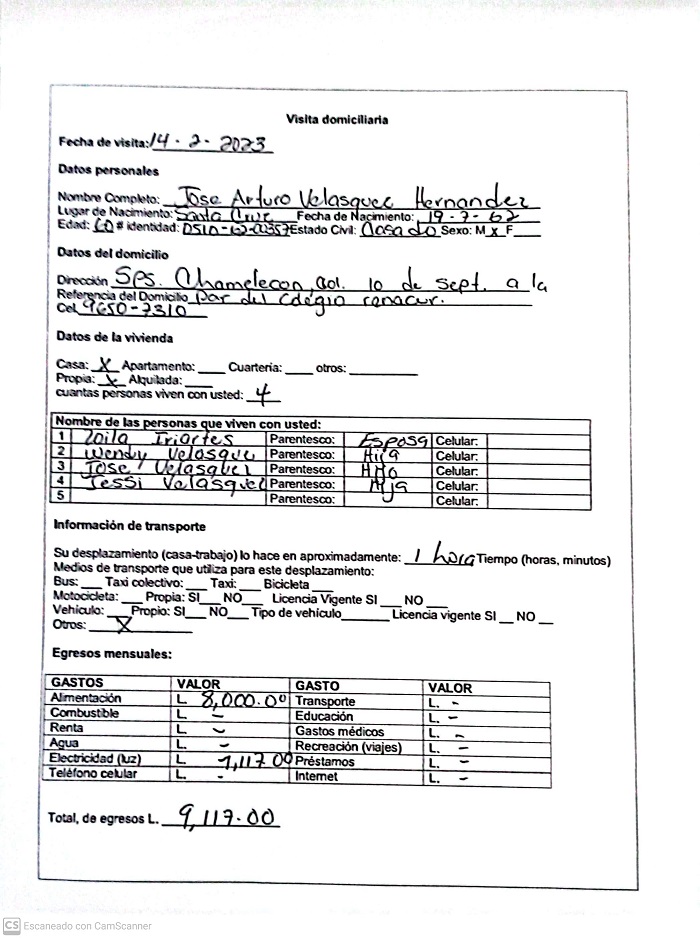 Visita domiciliaria
Fecha de visita: 14 - 2 - 2023
Datos personales
Nombre Completo: Jose Arturo Velasquez Hernandez
Lugar de Nacimiento: Santa Cruz Fecha de Nacimiento: 19-7-62
Edad: 60 # identidad: 0510-62-00357 Estado Civil: Casado Sexo: M x F
Datos del domicilio
Dirección Sps. Chamelecon, Col. 10 de Sept. a la
Referencia del Domicilio par del Colegio
Cel. 9650-7310
Datos de la vivienda
Casa: X Apartamento: ____ Cuartería: ____ otros: ____
Propia: X Alquilada: ____
cuantas personas viven con usted: 4
Nombre de las personas que viven con usted:
1 Zoila Iriartes Parentesco: Esposa Celular:
2 Wendy Velasque Parentesco: Hija Celular:
3 Jose Velasquez Parentesco: Hijo Celular:
4 Jessi Velasquez Parentesco: Hija Celular:
5 Parentesco: Celular:
Información de transporte
Su desplazamiento (casa-trabajo) lo hace en aproximadamente: 1 hora Tiempo (horas, minutos)
Medios de transporte que utiliza para este desplazamiento:
Bus: ___ Taxi colectivo: ___ Taxi: ___ Bicicleta ___
Motocicleta: ___ Propia: SI___ NO___ Licencia Vigente SI ___ NO ___
Vehículo: ___ Propio: SI___ NO___ Tipo de vehículo_______ Licencia vigente SI __ NO __
Otros: X
Egresos mensuales:
GASTOS VALOR GASTO VALOR
Alimentación L 8,000.00 Transporte L. -
Combustible L - Educación L. -
Renta L - Gastos médicos L. -
Agua L - Recreación (viajes) L. -
Electricidad (luz) L 1,117 00 Préstamos L. -
Teléfono celular L. - Internet L. -
Total, de egresos L. 9,117.00
CS Escaneado con CamScanner